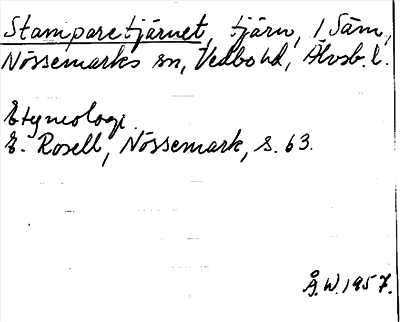 Stamparetjärnet, tjärn, 1 Säm,
Nössemarks sn, Vedbo hd, Älvsb. l.
Etymologi.
E. Rosell, Nössemark, s. 63.
Å.W. 1957.